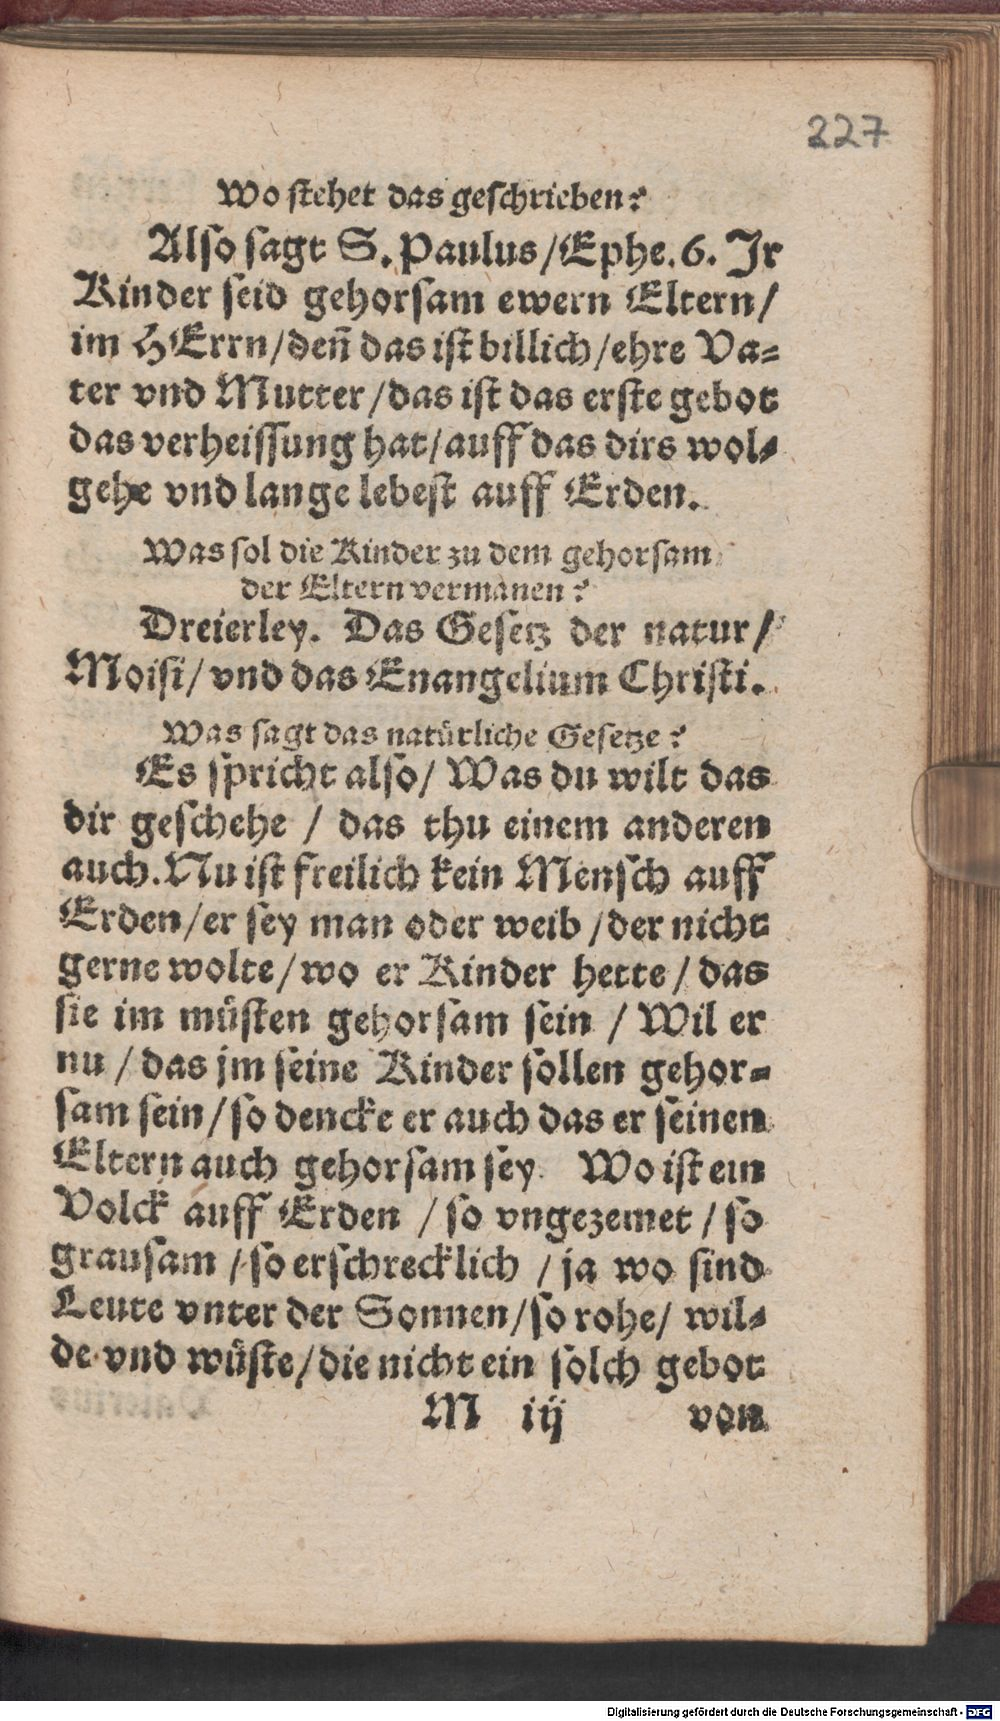 227
Wo stehet das geschrieben?
Also sagt S. Paulus/Ephe. 6. Jr
Kinder seid gehorsam ewern Eltern/
im HErrn/deñ das ist billich/ehre Va-
ter vnd Mutter/das ist das erste gebot
das verheissung hat/auff das dirs wol-
gehe vnd lange lebest auff Erden.
Was sol die Kinder zu dem gehorsam
der Eltern vermanen?
Dreierley. Das Gesetz der natur/
Moisi/vnd das Enangelium Christi.
Was sagt das natürliche Gesetze?
Es spricht also/ Was du wilt das
dir geschehe / das thu einem anderen
auch. Nu ist freilich kein Mensch auff
Erden/er sey man oder weib/der nicht
gerne wolte/wo er Kinder hette/das
sie im müsten gehorsam sein / Wil er
nu / das jm seine Kinder sollen gehor-
sam sein/so dencke er auch das er seinen
Eltern auch gehorsam sey Wo ist ein
Volck auff Erden / so vngezemet / so
grausam / so erschrecklich / ja wo sind
Leute vnter der Sonnen/so rohe/ wil-
de vnd wüste/die nicht ein solch gebot
M iij von
Digitalisierung gefördert durch die Deutsche Forschungsgemeinschaft - DFG